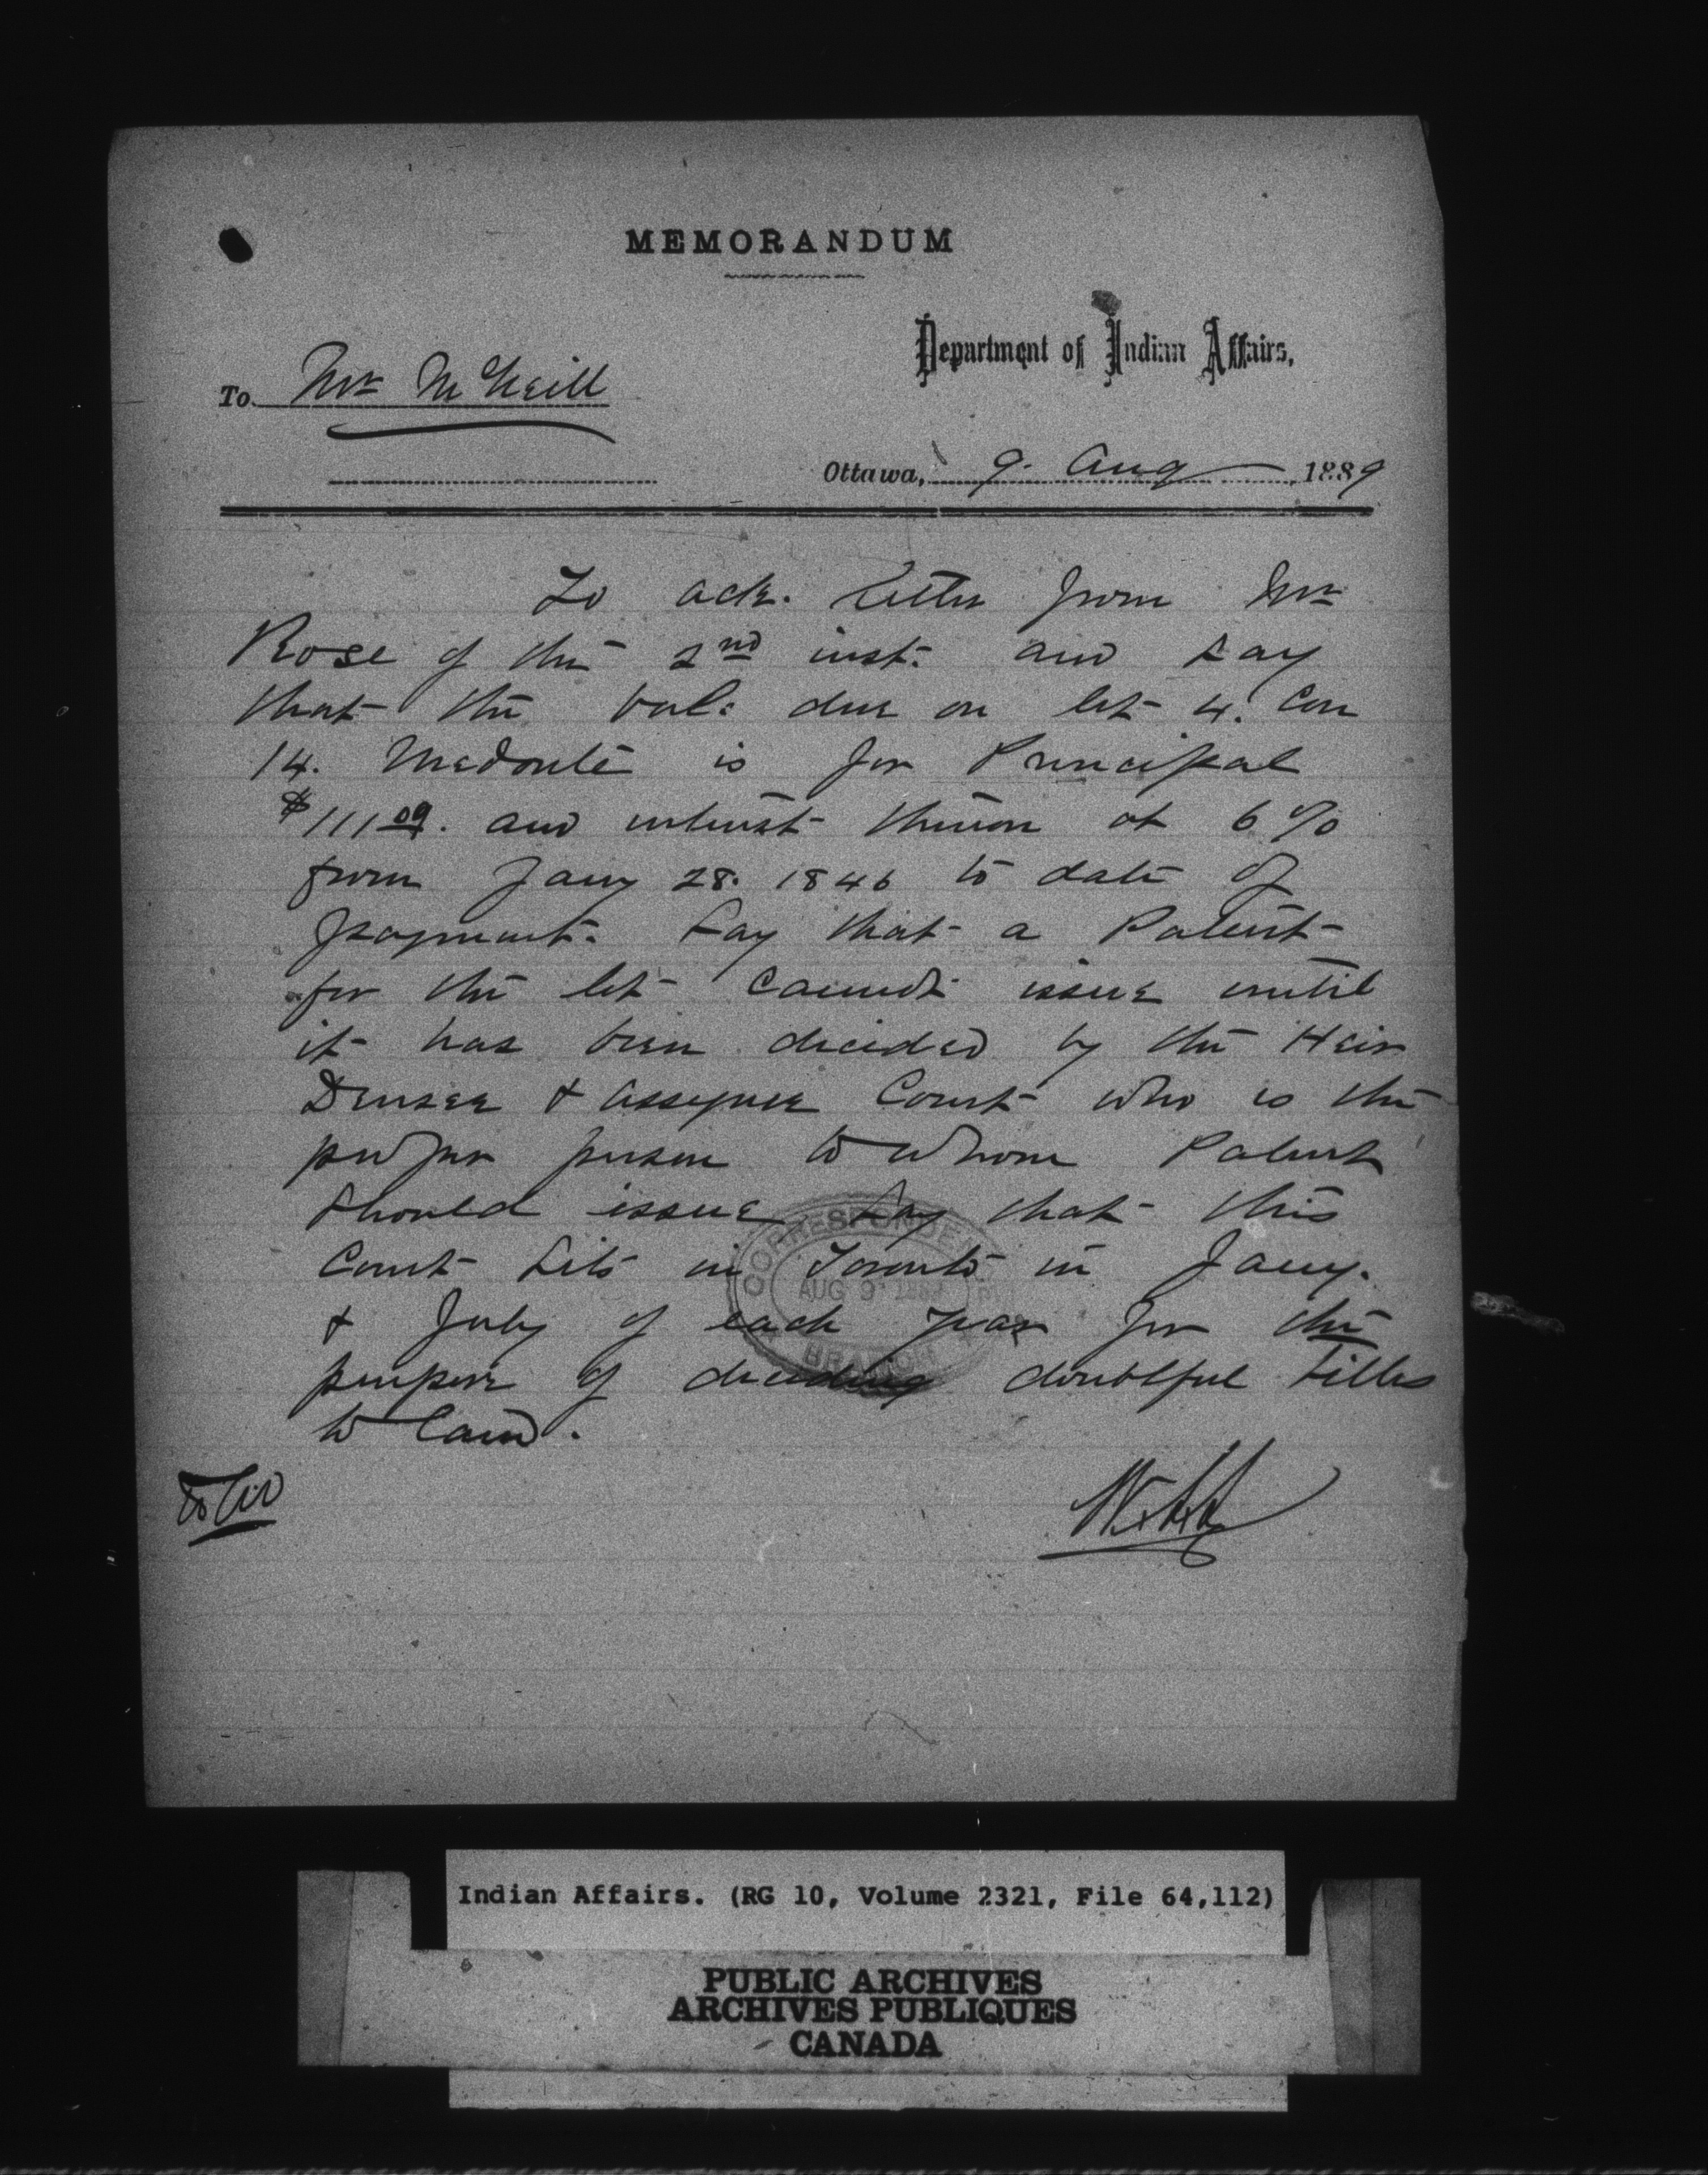 MEMORANDUM
Department of Indian Affairs,
To Mr McNeill
Ottawa, 9. Aug 1889
To ack. letter from Mr
Rose of the 2nd inst. and say
that the bal: due on lot 4. Con
14. Medonte is for Principal
$111 09. and interest thereon at 6%
from Jany 28. 1846 to date of
payment. Say that a Patent
for the lot cannot issue until
it has been decided by the Heir
Devisee & Assignee Court who is the
proper person to whom Patent
should issue Say that this
Court sits in Toronto in Jany.
& July of each year for the
purpose of deciding doubtful titles
to land.
CORRESPONDENCE
AUG 9 1889
BRANCH
Indian Affairs. (RG 10, Volume 2321, File 64,112)
PUBLIC ARCHIVES
ARCHIVES PUBLIQUES
CANADA